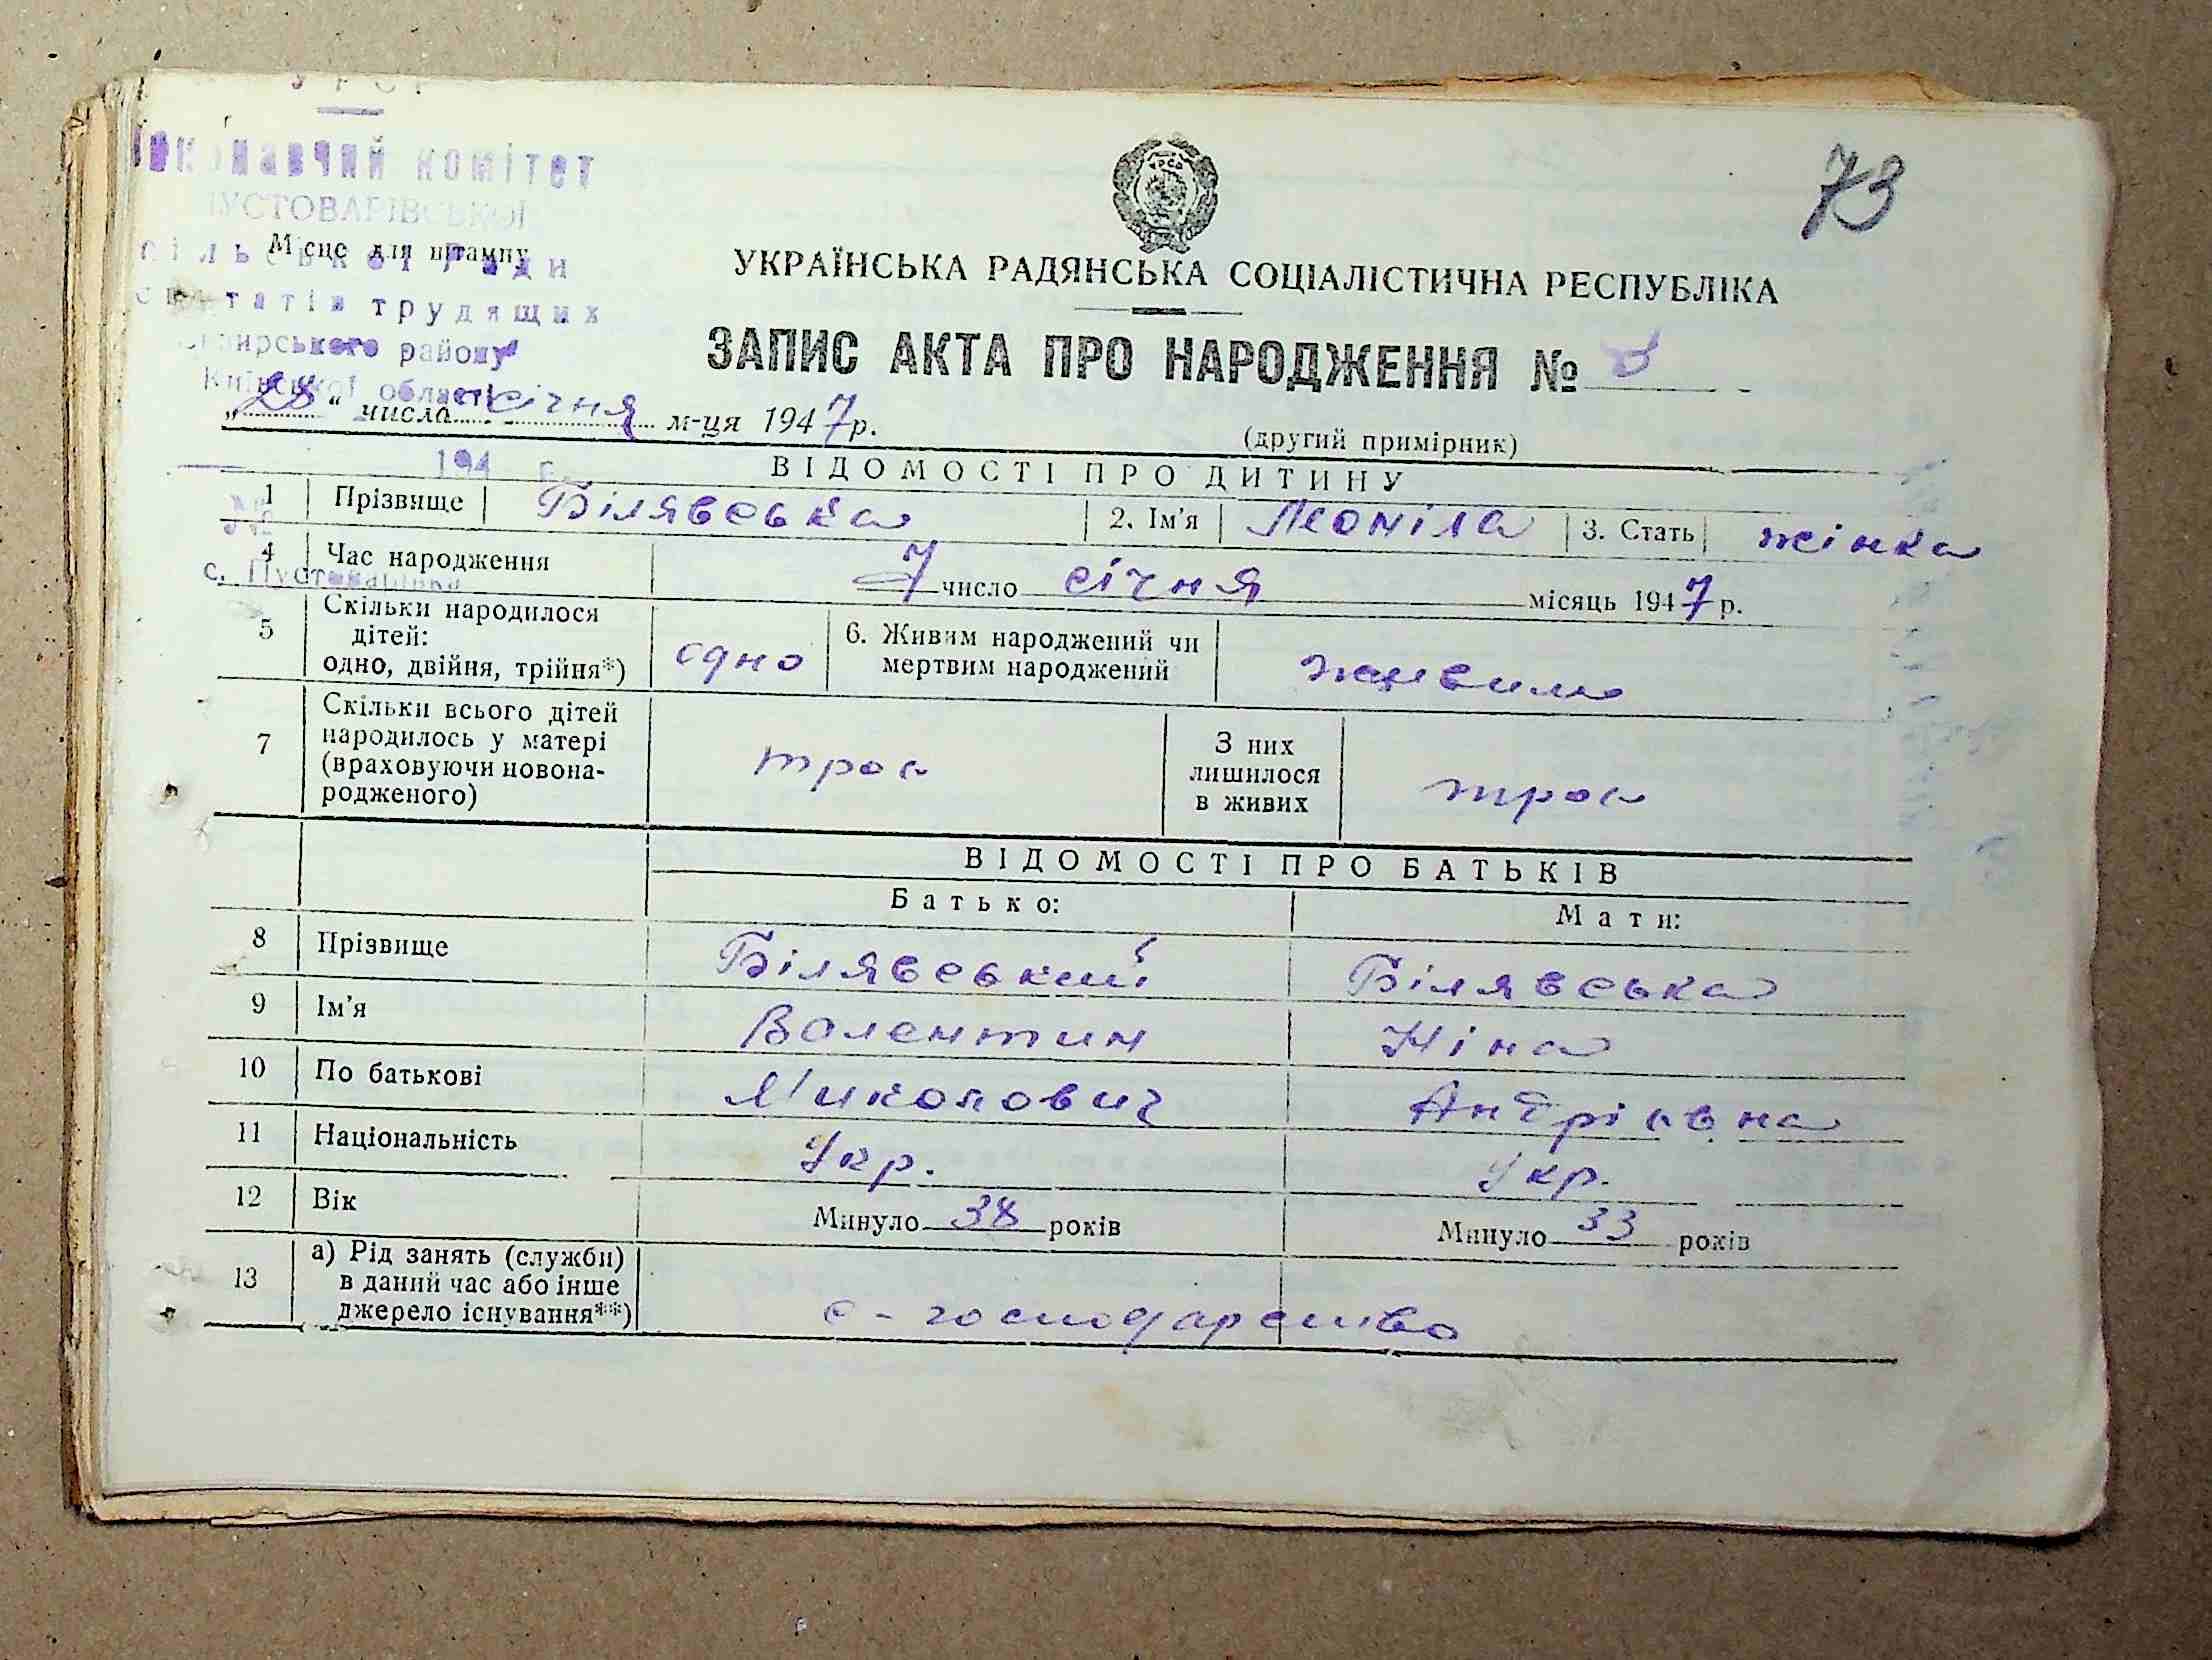 73
конавчий комітет
ПУСТОВАРІВСЬКОЇ
Місце для штампу
сільської Ради
депутатів трудящих
района
Київської області
УКРАЇНСЬКА РАДЯНСЬКА СОЦІАЛІСТИЧНА РЕСПУБЛІКА
ЗАПИС АКТА ПРО НАРОДЖЕННЯ №
„28“ числа січня м-ця 1947 р.
(другий примірник)
194 р.
ВІДОМОСТІ ПРО ДИТИНУ
1 Прізвище Білявська 2. Ім'я Леоніла 3. Стать жінка
4 Час народження 7 число січня місяць 1947 р.
с. Пустоварівка
5 Скільки народилося дітей: одно, двійня, трійня*) одно 6. Живим народжений чи мертвим народжений живим
7 Скільки всього дітей народилось у матері (враховуючи новонародженого) троє З них лишилося в живих троє
ВІДОМОСТІ ПРО БАТЬКІВ
Батько: Мати:
8 Прізвище Білявський Білявська
9 Ім'я Валентин Ніна
10 По батькові Миколович Андріївна
11 Національність Укр. Укр.
12 Вік Минуло 38 років Минуло 33 років
13 а) Рід занять (служби) в даний час або інше джерело існування**) с-господарство